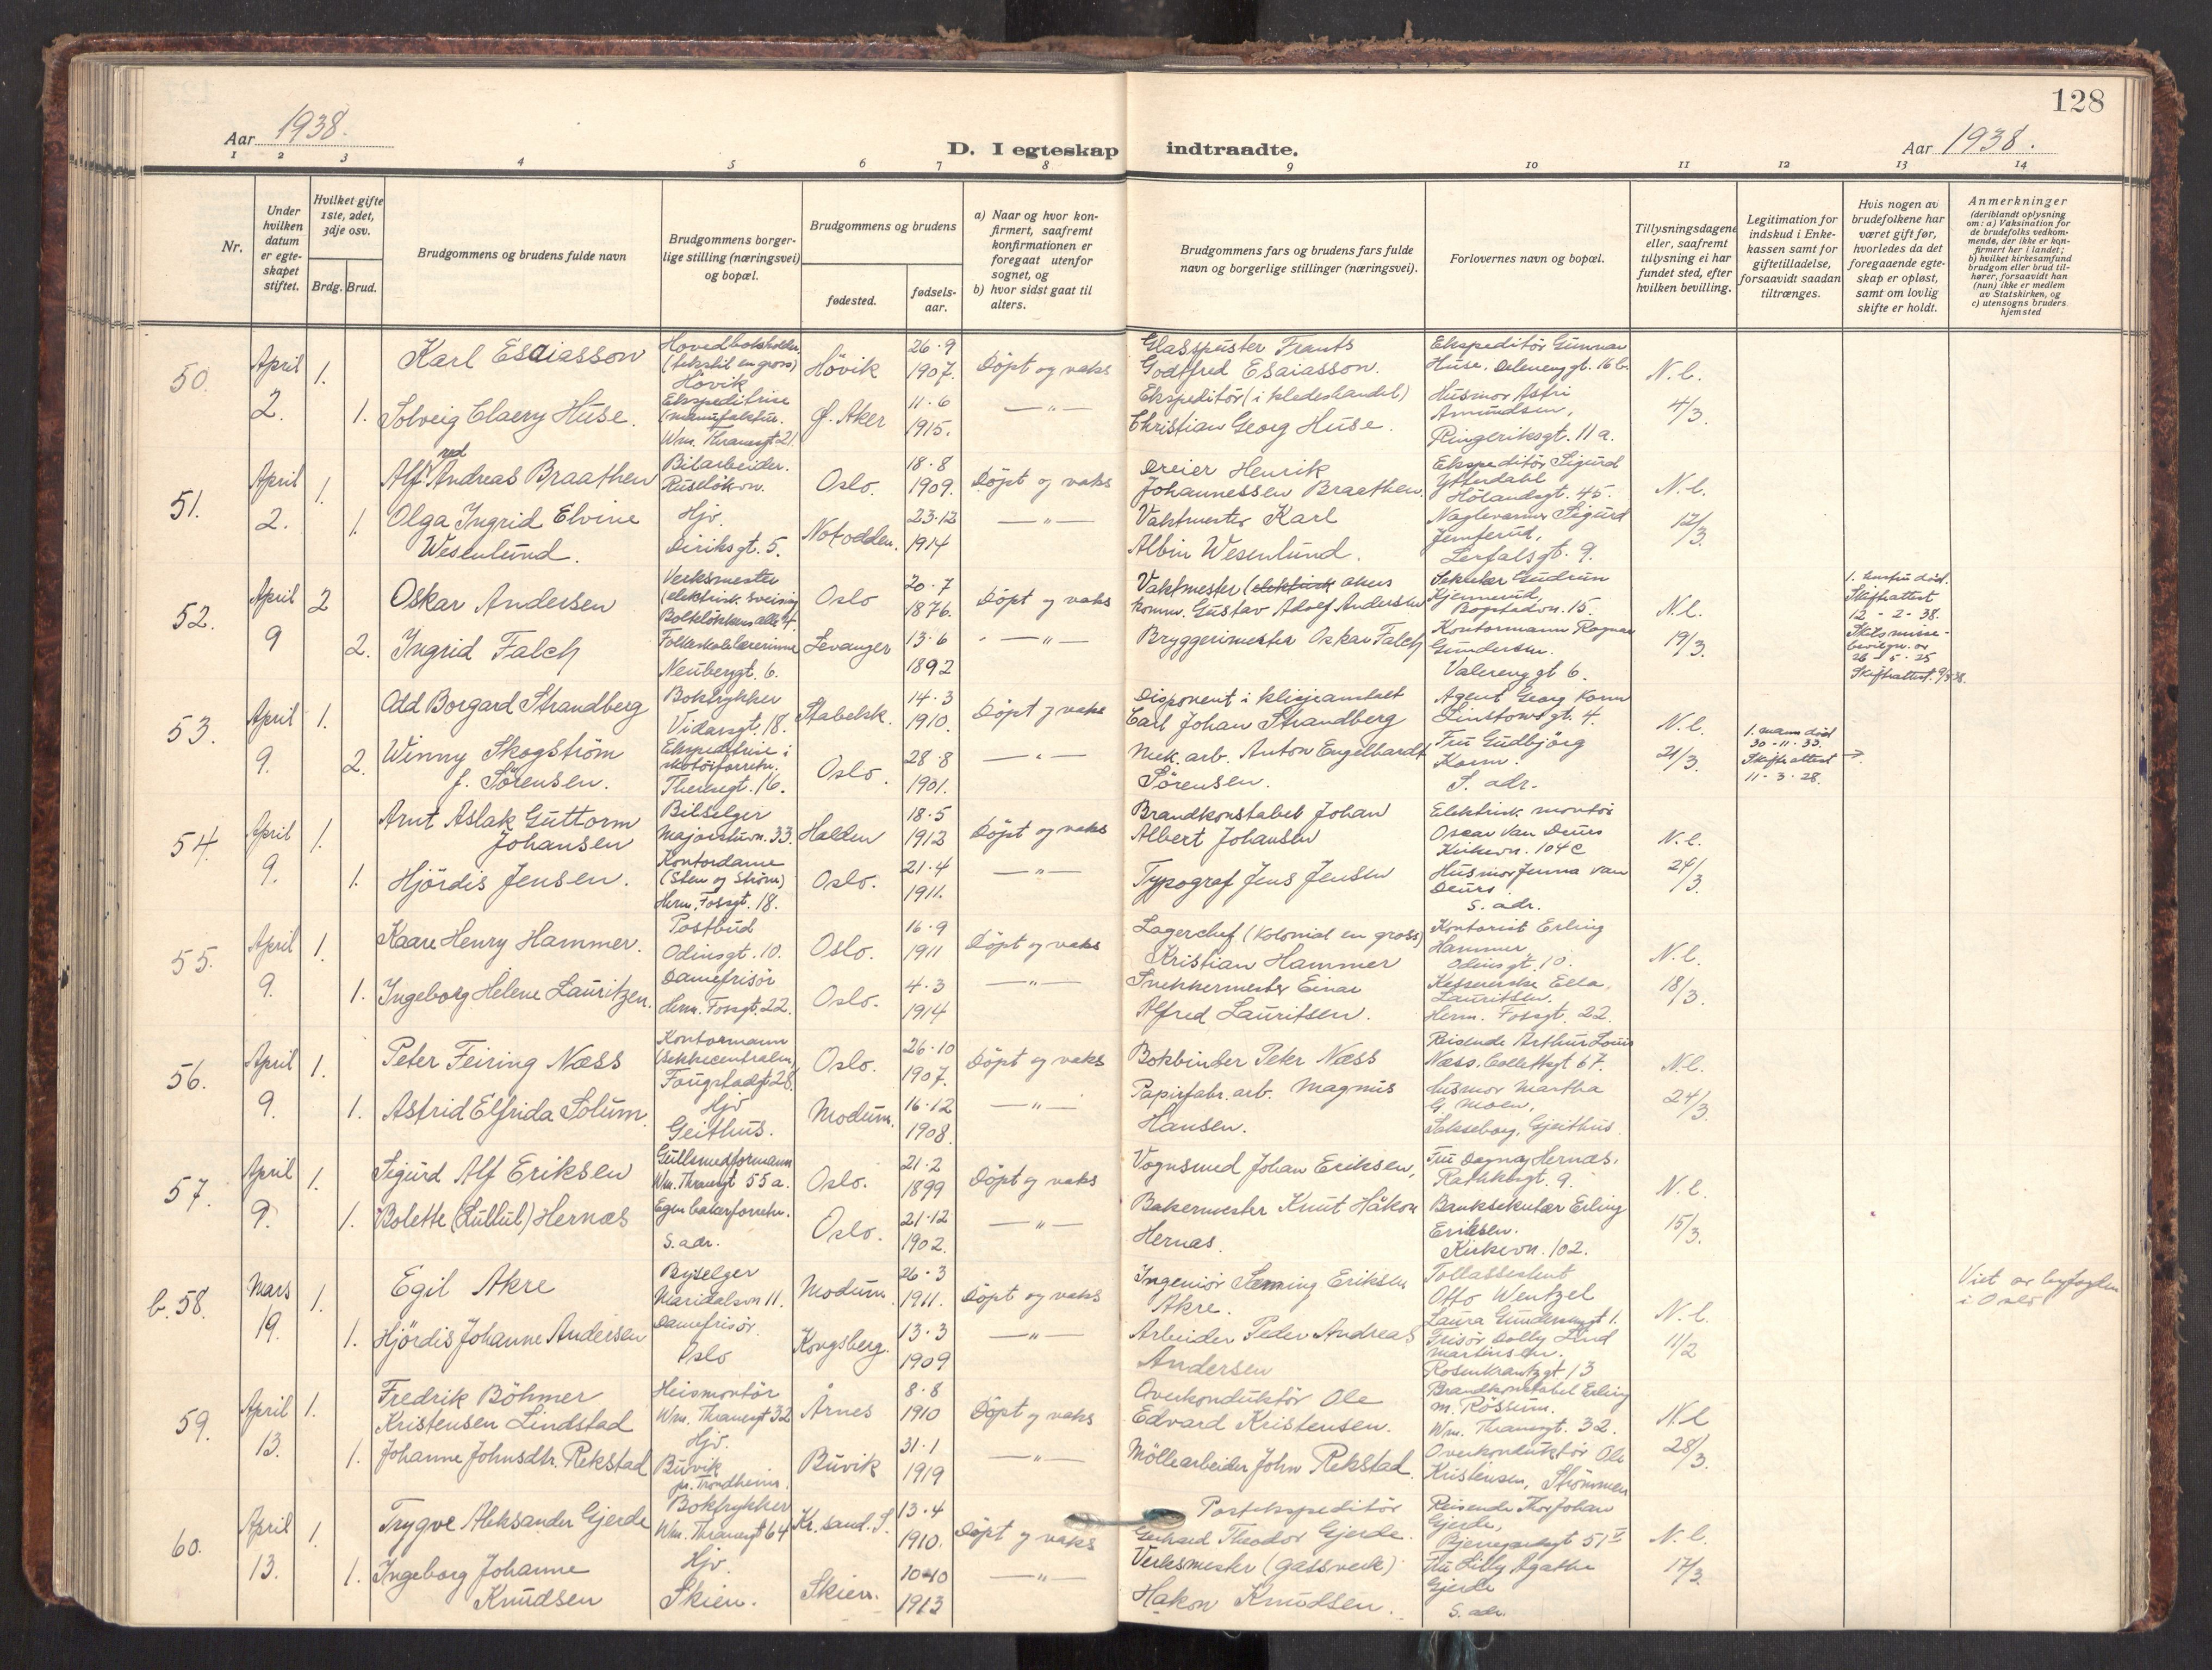 128
Aar 1938.
D. I egteskap indtraadte.
Aar 1938.
1 2 3 4 5 6 7 8 9 10 11 12 13 14
Nr.
Under hvilken datum er egteskapet stiftet.
Hvilket gifte 1ste, 2det, 3dje osv.
Brdg. Brud.
Brudgommens og brudens fulde navn
Brudgommens borgerlige stilling (næringsvei) og bopæl.
Brudgommens og brudens
fødested.
fødselsaar.
a) Naar og hvor konfirmert, saafremt konfirmationen er foregaat utenfor sognet, og
b) hvor sidst gaat til alters.
Brudgommens fars og brudens fars fulde navn og borgerlige stillinger (næringsvei).
Forlovernes navn og bopæl.
Tillysningsdagene eller, saafremt tillysning ei har fundet sted, efter hvilken bevilling.
Legitimation for indskud i Enkekassen samt for giftetilladelse, forsaavidt saadan tiltrænges.
Hvis nogen av brudefolkene har været gift før, hvorledes da det foregaaende egteskap er opløst, samt om lovlig skifte er holdt.
Anmerkninger
(deriblandt oplysning om: a) Vaksination for de brudefolks vedkommende, der ikke er konfirmert her i landet; b) hvilket kirkesamfund brudgom eller brud tilhører, forsaavidt han (hun) ikke er medlem av Statskirken, og c) utensogns bruders hjemsted
50. April 2.
1. Karl Esaiasson
Hovedboksholder (tekstil engros) Hövik
Hövik
26·9 1907.
Döpt og vaks
Glasspuster Frants Godtfred Esaiasson.
Ekspeditör Gunnar Huse,
N.l. 4/3.
1. Solveig Claery Huse.
Ekspeditrise (manufaktur. Wm. Thranesgt 21.
Ø. Aker
11·6 1915.
— " —
Ekspeditör (i kledeshandel) Christian Georg Huse.
Husmor Astri Amundsen, Ringeriksgt. 11 a.
51. April 2.
1. Alf Andreas Braathen
Bilarbeider. Ruselökvn.
Oslo.
18·8 1909.
Döpt og vaks
Dreier Henrik Johannessen Braathen.
Ekspeditör Sigurd Ytterdahl Hölandsgt. 45.
N.l. 12/3.
1. Olga Ingrid Elvine Wesenlund.
Hjv. Diriksgt. 5.
Notodden.
23·12 1914
— " —
Vaktmester Karl Albin Wesenlund.
Sigurd Jemterud, Lerfalsgt. 9.
52. April 9
2 Oskar Andersen
Verksmester (elektrisk sveising Boltelökkens alle 4.
Oslo
20·7 1876.
Döpt og vaks
Vaktmester (elektrisk Akers komm. Gustav Adolf Andersen
Sekretær Gudrun Kjennerud, Bogstadvn. 15.
N.l. 19/3.
1. hustru död. Skifteattest 12-2-38.
2. Ingrid Falch
Folkeskolelærerinne Neubergt. 6.
Levanger
13·6 1892
— " —
Bryggerimester Oskar Falch
Kontormann Ragnar Gundersen. Valerenggt 6.
Skilsmisse-bevilgn. av 26-5-25 Skifteattest.
53. April 9.
1. Odd Borgard Strandberg
Boktrykker Vidarsgt. 18.
Stabekk.
14·3 1910.
Döpt og vaks
Disponent i klisjeanstalt Carl Johan Strandberg
Agent Georg Korm Linstowsgt. 4.
N.l. 21/3.
2. Winny Skogström f. Sörensen.
Ekspeditrise i skotöiforretn. Theresgt. 16.
Oslo.
28·8 1901.
— " —
Mek. arb. Anton Engelhardt Sörensen.
Fru Gudbjörg Korm. S. adr.
1. mann död 30-11-33. Skifteattest 11-3-28. →
54. April 9.
1. Arnt Aslak Guttorm Johansen
Bilselger Majorstuvn. 33.
Halden
18·5 1912
Döpt og vaks
Brandkonstabel Johan Albert Johansen
Elektrisk montör Oscar van Deurs Kirkevn. 104 C
N.l. 24/3.
1. Hjördis Jensen.
Kontordame (Sten og Ström) Herm. Fossgt. 18.
Oslo.
21·4 1911.
— " —
Typograf Jens Jensen
Husmor Jenna van Deurs. S. adr.
55. April 9.
1. Kaare Henry Hammer.
Postbud Odinsgt. 10.
Oslo.
16·9 1911
Döpt og vaks
Lagerchef (kolonial en gross) Kristian Hammer
Kontorist Erling Hammer Odinsgt. 10.
N.l. 18/3.
1. Ingeborg Helene Lauritzen.
Damefrisör Herm. Fossgt. 22.
Oslo.
4·3 1914
— " —
Snekkermester Einar Alfred Lauritsen.
Kassererske Ella Lauritsen. Herm. Fossgt. 22.
56. April 9.
1. Peter Feiring Næss
Kontormann Fougstadgt 28.
Oslo.
26·10 1907.
Döpt og vaks
Bokbinder Peter Næss
Reisende Arthur Louis Næss. Collettsgt 67.
N.l. 24/3.
1. Astrid Elfrida Solum.
Hjv Geithus.
Modum.
16·12 1908.
— " —
Papirfabr. arb. Magnus Hansen.
Husmor Martha G. Moen, Gjeithus.
57. April 9.
1. Sigurd Alf Eriksen
Gullsmedformann Wm. Thranesgt 55 a.
Oslo.
21·2 1899
Döpt og vaks
Vognsmed Johan Eriksen,
Fru Dagny Hernæs. Rathkesgt. 9.
N.l. 15/3.
1. Bolette (Lullul) Hernæs
Egen bakerforretn. S. adr.
Oslo.
21·12 1902.
— " —
Bakermester Knut Håkon Hernæs.
Banksekretær Erling Eriksen. Kirkevn. 102.
b. 58. Mars 19.
1. Egil Akre
Byselger Maridalsvn 11.
Modum
26·3 1911.
Döpt og vaks
Ingeniör Semming Eriksen Akre.
Tollassistent Otto Wentzel Laura Gundersensgt 1.
N.l. 11/2
Viet av byfogden i Oslo
1. Hjördis Johanne Andersen
Damefrisör. Oslo
Kongsberg.
13·3 1909
— " —
Arbeider Peder Andreas Andersen
Frisör Dolly Lind Martinsen. Rosenkrantzgt 13
59. April 13.
1. Fredrik Böhmer Kristensen Lindstad
Heismontör Wm. Thranesgt 32
Årnes
8·8 1910
Döpt og vaks
Overkonduktör Ole Edvard Kristensen.
Brandkonstabel Erling M. Rössum. Wm. Thranesgt. 32.
N.l 28/3.
1. Johanne Johnsdtr. Rekstad
Hjv. Buvik pr. Trondheim.
Buvik
31·1 1919
— " —
Möllearbeider John Rekstad.
Overkonduktör Ole Kristensen, Strömmen
60. April 13.
1. Trygve Aleksander Gjerde
Boktrykker Wm. Thranesgt 64
Kr. sand. S.
13·4 1910.
Döpt og vaks
Postekspeditör Gerhard Theodor Gjerde.
Reisende Thor Johan Gjerde, Bjerregaardsgt 51 V
N.l. 17/3.
1. Ingeborg Johanne Knudsen
Hjv. Skien.
Skien.
10·10 1913
— " —
Verksmester (gassverk) Hakon Knudsen.
Fru Lilly Agathe Gjerde S. adr.